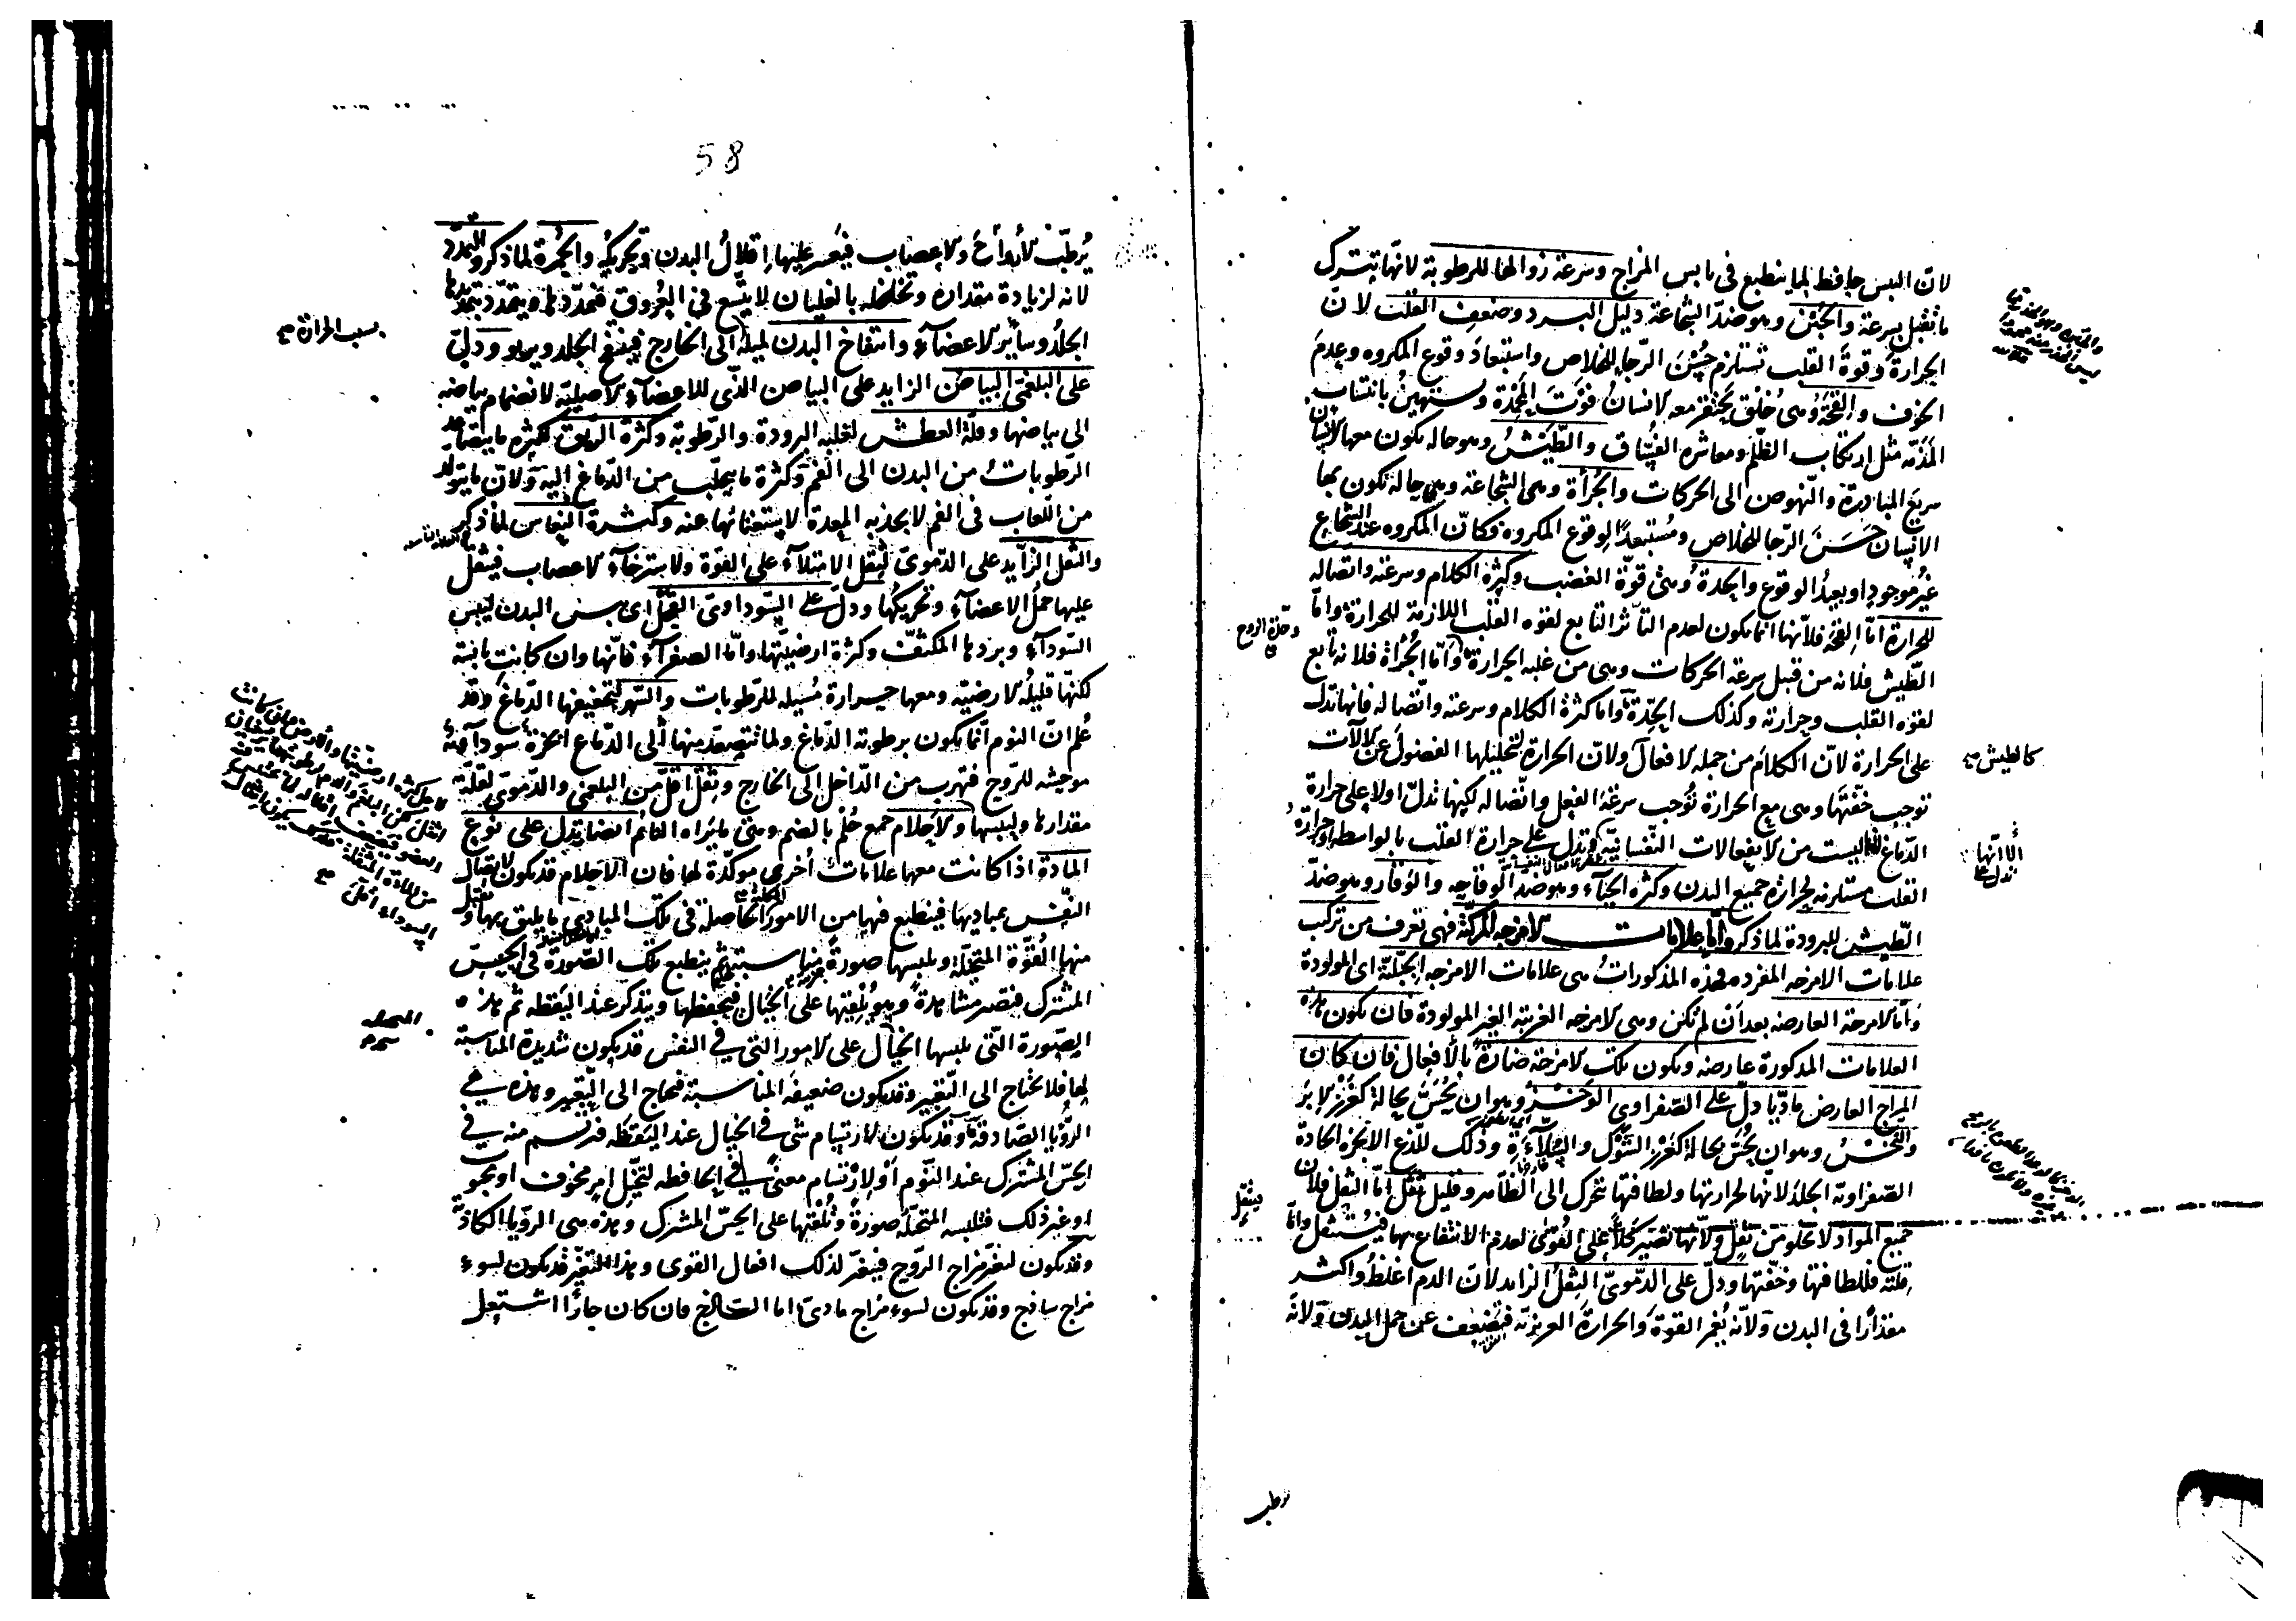 لانّ اليبس حافظ لما ينطبع فى يابس المزاج وسرعة زوالها للرطوبة لانّها تترك
ما تقبل بسرعة والجبن وهو ضدّ الشجاعة دليل البرد وضعف القلب لانّ
الحرارة وقوة القلب تستلزم حُسْنَ الرّجا للخلاص واستبعادَ وقوع المكروه وعدمَ
الخوف والقحة وهى خلق يحتقر معه الانسان فوتَ المحمدة ويستهين بانتساب
المذمّة مثل ارتكاب الظلم ومعاشرة الفسّاق والطيش وهو حالة يكون معها الانسان
سريع المبادرة والنهوض الى الحركات والجُرأة وهى الشجاعة وهى حالة تكون بها
الانسان حَسَنَ الرّجا للخلاص ومُستبعدًا لوقوع المكروه فكانّ المكروه عند الشجاع
غير موجود او بعيد الوقوع والحدة وهى قوّة الغضب وكثرة الكلام وسرعته واتصاله
للحرارة امّا القحة فلانّها انما يكون لعدم التأثر التابع لقوة القلب اللازمة للحرارة وامّا
وحدّة الروح
الطيش فلانه من قبل سرعة الحركات وهى من غلبة الحرارة وامّا الجُرأة فلانه تابع
لقوة القلب وحرارته وكذلك الحِدّة وامّا كثرة الكلام وسرعته واتّصاله فانها تدل
على الحرارة لانّ الكلام من جملة الافعال ولانّ الحرارة لتحليلها الفضول عن الآلات
كالطيش صح
توجب خفّتها وهى مع الحرارة تُوجب سرعة الفعل واتّصاله لكنها تدلّ اولا على حرارة
الدّماغ ليست من الانفعالات النّفسانيّة وتدل على حرارة القلب بالواسطة اذ حرارة
الا انّها تدل على
القلب مستلزمة لحرارة جميع البدن وكثرة الحياء وهو ضدّ الوقاحة والوقار وهو ضدّ
الطيش للبرودة لما ذكر وامّا علامات الامزجة المركّبة فهى تعرف من تركب
علامات الامزجة المفردة فهذه المذكورات هى علامات الامزجة الجبلّيّة اى المولودة
وامّا الامزجة العارضة بعد ان لم تكن وهى الامزجة الغريبة الغير المولودة فان يكون هذه
العلامات المذكورة عارضة ويكون تلك الامزجة ضارّة بالافعال فان كان
المزاج العارض مادّيا دلّ على الصّفراوى الوَخْز وهو ان يُحَسّ بحالة كغَرْز الابَر
والنخس وهو ان يُحَسّ بحالة كغرز الشوك وذلك للذع الابخرة الحادة
الصّفراوية الجلدَ لانها لحرارتها ولطافتها تتحرك الى الظاهر وقليل ثقل امّا الثقل فلان
فيثقل
جميع المواد لا تخلو من ثقل ولانّها تصير كَلًّا على القوى لعدم الانتفاع بها فيُستثقل وامّا
قلّته فللطافتها وخفّتها ودلّ على الدّموىّ الثقل الزايد لانّ الدم اغلظ واكثر
مقدارًا فى البدن ولانّه يُغمر القوة والحرارة الغريزيّة فيضعف عن حمل البدن ولانّه
يرطب
58
يُرطّب الارواح والاعصاب فيَعسر عليها اِقلال البدن وتحريكه والحُمرة لما ذكر والتمدّد
لانه لزيادة مقداره وتخلخله بالغليان لا يتّسع فى العُروق فتمدّدها ويتمدّد بتمدّدها
بسبب الحرارة صح
الجلد وساير الاعضاء وانتفاخ البدن لميله الى الخارج فينتفخ الجلد ويربو ودلّ
على البلغمى البياض الزايد على البياض الذى للاعضاء الاصليّة لانضمام بياضه
الى بياضها وقلّة العطش لغلبة البرودة والرّطوبة وكثرة الريق لكثرة ما يتصاعد
الرّطوبات من البدن الى الفم وكثرة ما يتحلّب من الدّماغ اليه ولانّ ما يتولد
من اللّعاب فى الفم لا يجذبه المعدة لاستغنائها عنه وكثرة النعاس لما ذكر
والثقل الزّايد على الدّموىّ لثقل الامتلاء على القوّة ولاسترخاء الاعصاب فيثقل
عليها حملُ الاعضاء وتحريكُها ودلّ على السّوداوىّ القحل اى يبس البدن ليبس
السّوداء وبردها المكثّف وكثرة ارضيّتها وامّا الصفراء فانّها وان كانت يابسة
لكنّها قليلة الارضيّة ومعها حرارة مُسيلة للرّطوبات والسّهر لتجفيفها الدّماغ وقد
عُلم انّ النوم انّما يكون برطوبة الدّماغ ولما يتصعّد منها الى الدّماغ ابخرة سوداويّة
موحشة للرّوح فتهرب من الدّاخل الى الخارج وثقل اقلّ من البلغمى والدّموىّ لقلّة
مقدارها وليبسها والاحلام جمع حُلم بالضم وهى ما يراه النّائم ايضا يدل على نوع
المادة اذا كانت معها علامات اُخرى موكّدة لها فان الاحلام قد يكون لاتصال
النّفس بمباديها فينطبع فيها من الامور الحاصلة فى تلك المبادى ما يليق بها وتنتقل
منها القوّة المتخيّلة وتلبسها صورة مناسبة ثم ينطبع تلك الصّورة فى الحسّ
المشترك فتصير مشاهدة وهو يلقيها على الخيال فيحفظها ويتذكر عند اليقظة ثم هذه
الصّورة التى يلبسها الخيال على الامور التى فى النفس قد يكون شديدة المناسبة
لها فلا يحتاج الى التعبير وقد يكون ضعيفة المناسبة فيحتاج الى التعبير وهذه هى
الرّؤيا الصّادقة وقد يكون لارتسام شى فى الخيال عند اليقظة فيرتسم منه فى
الحسّ المشترك عند النّوم او لارتسام معنى فى الحافظة لتخيّل امر مخوف او مرجو
او غير ذلك فتلبسه المتخيّلة صورة وتُلقيها على الحسّ المشترك وهذه هى الرؤيا الكاذبة
وقد يكون لتغيّر مزاج الرّوح فيتغيّر لذلك افعال القوى وهذا التغيّر قد يكون لسوء
مزاج ساذج وقد يكون لسوء مزاج مادىّ امّا السّاذج فان كان حارًّا اشتعل